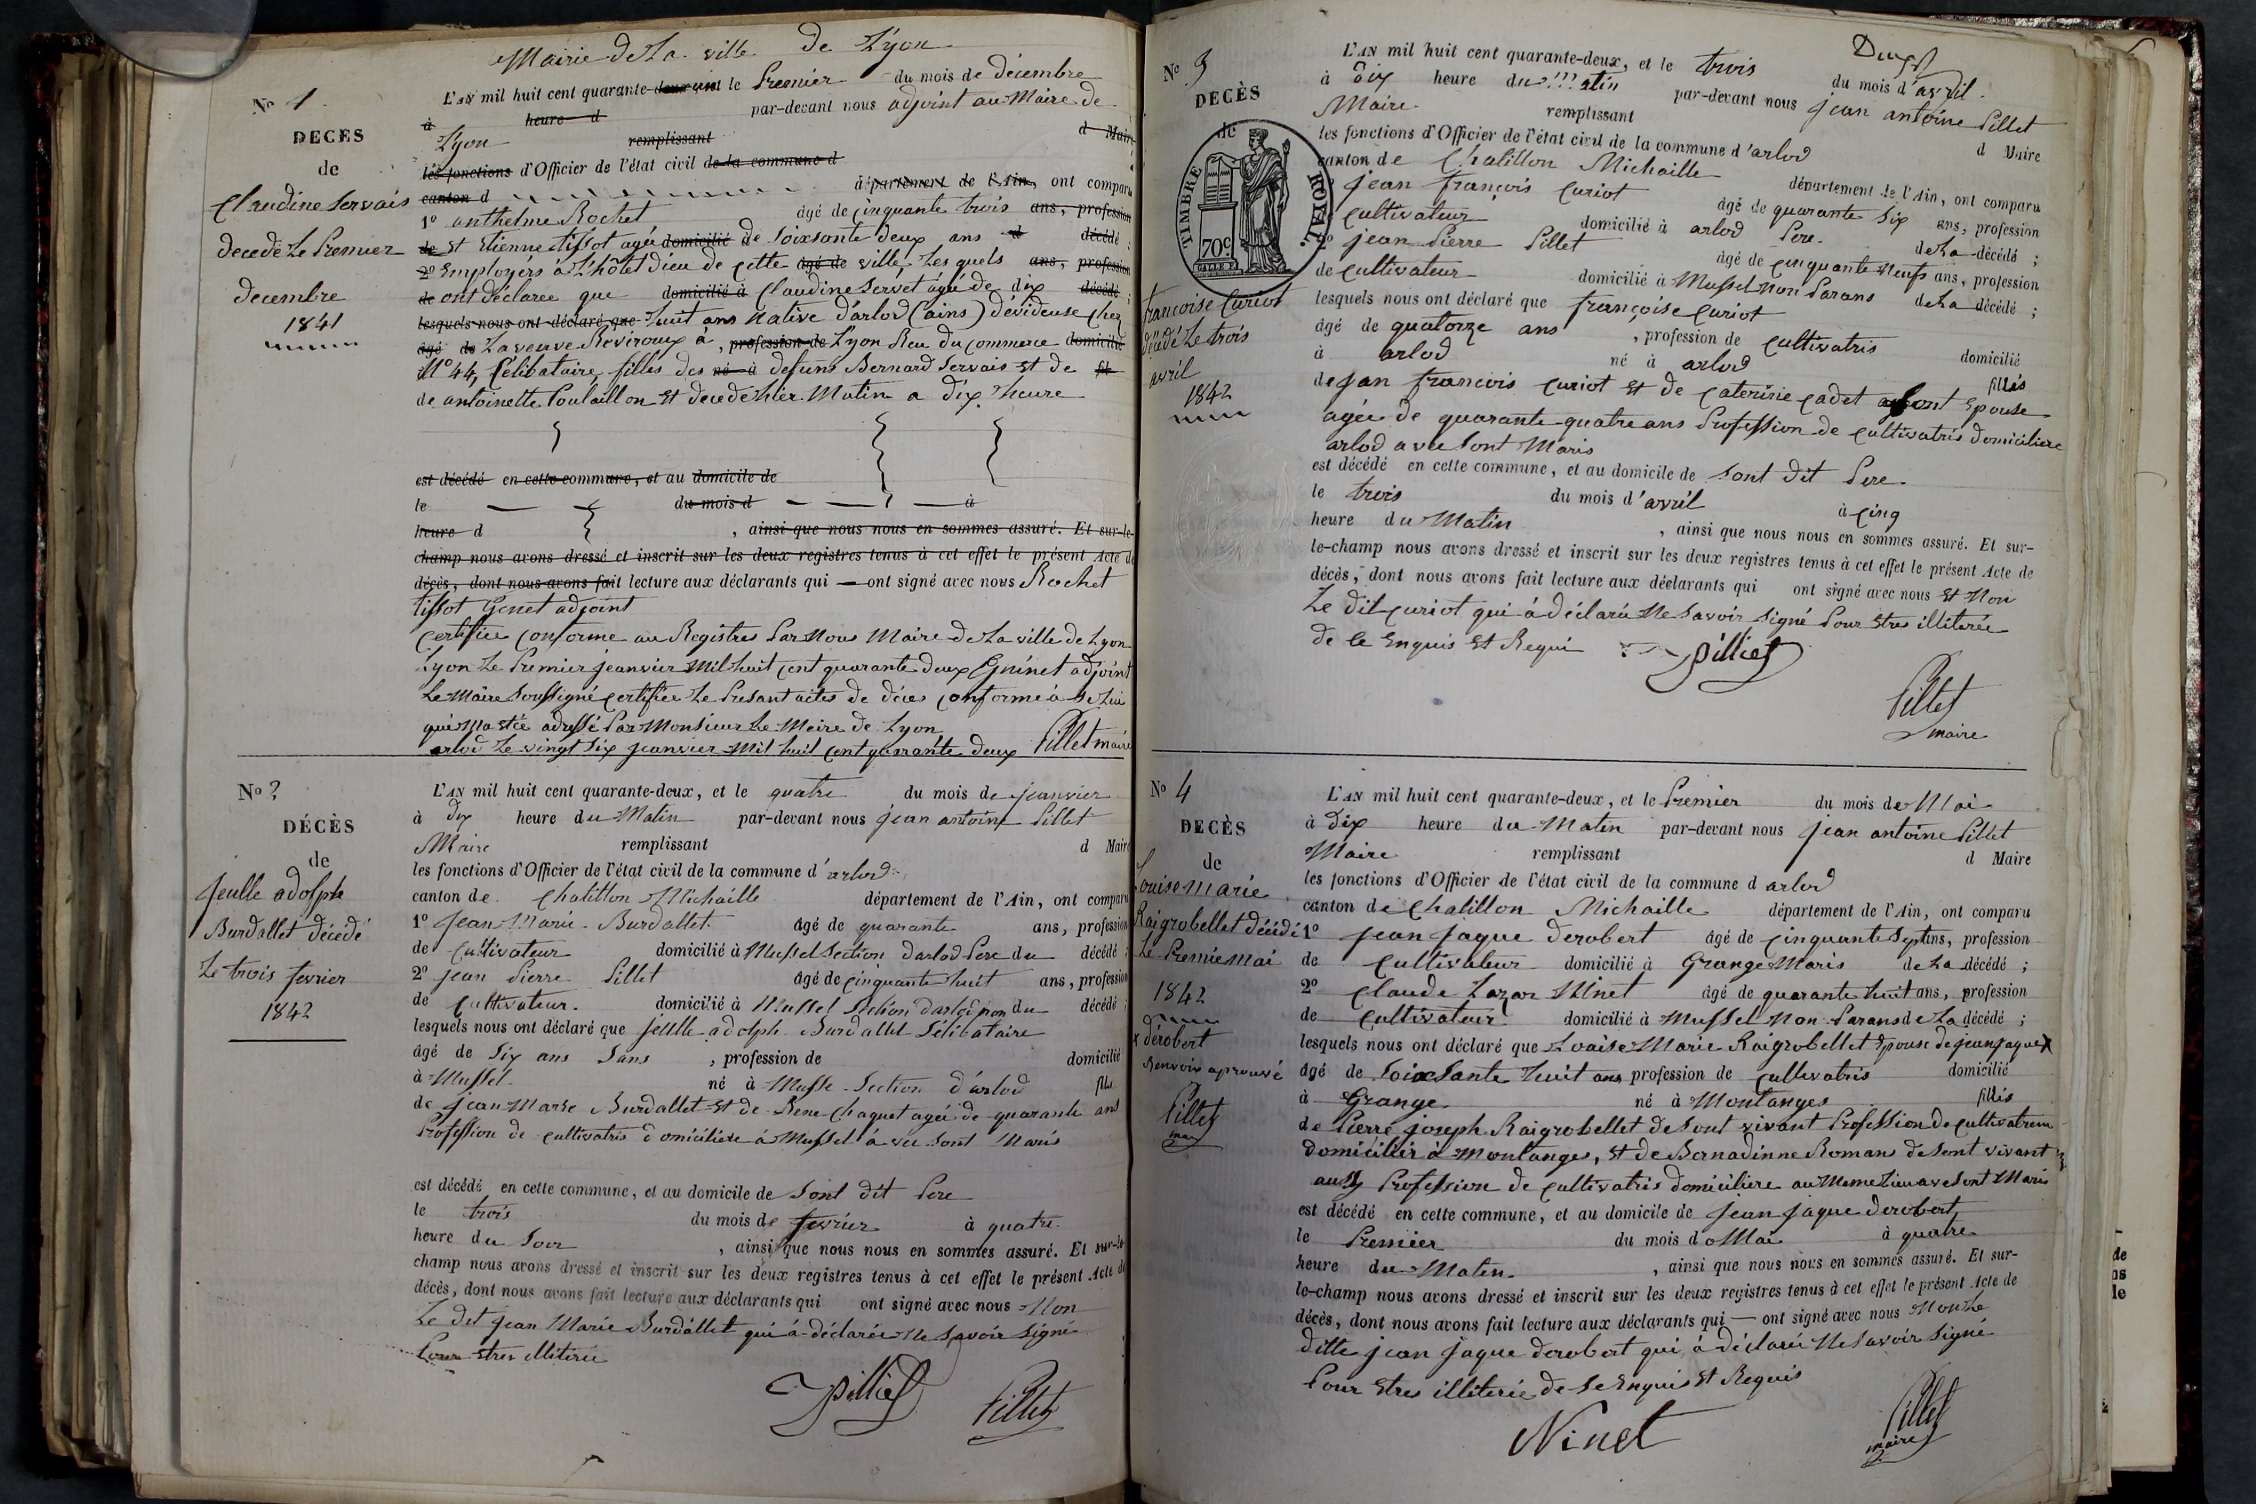 Mairie de La ville de Lyon
No 1
DÉCÈS
de
Claudine Servais
décédé Le Premier
decembre
1841
L'AN mil huit cent quarante-deux et le Premier du mois de décembre
à heure d par-devant nous adjoint au Maire de
Lyon remplissant d Maire
les fonctions d'Officier de l'état civil de la commune d
canton d département de l'Ain, ont comparu
1o anthelme Rochet âgé de cinquante trois ans, profession
de Et Etienne tissot agée domicilié de soixsante deux ans d décédé ;
2o Employérs à L'hôtel dieu de cette âgé de ville Les quels ans, profession
de ont déclarée que domicilié à Claudine Servet âgé de dix décédé ;
lesquels nous ont déclaré que huit ans Native d'arlod (ains) dévideuse chez
âgé de La veuve Reviroux à , profession de Lyon Rue du Commerce domicilié
No 44, Célibataire, filles des né à defuns Bernard Servais Et de fil
de antoinette Poulaillon Et decede hier Matin a dix heure
est décédé en cette commune, et au domicile de
le du mois d à
heure d , ainsi que nous nous en sommes assuré. Et sur-le-
champ nous avons dressé et inscrit sur les deux registres tenus à cet effet le présent Acte de
décès, dont nous avons fait lecture aux déclarants qui — ont signé avec nous Rochet
tissot Genet adjoint
Certifiée Conforme au Registres Par Nous Maire de La ville de Lyon
Lyon Le Premier jeanvier Mil huit cent quarante deux Guinet adjoint
Le Maire Soussigné Certifiée Le Presant actes de déces Conforme à Se Lui
qui Ma été adressé Par Monsieur Le Maire de Lyon
arlod Le vingt Six jeanvier Mil huit cent quarante deux Pillet maire
No 2
DÉCÈS
de
Jeulle adolph
Burdallet décédé
Le trois fevrier
1842
L'AN mil huit cent quarante-deux, et le quatre du mois de jeanvier
à dix heure du Matin par-devant nous jean antoine Pillet
Maire remplissant d Maire
les fonctions d'Officier de l'état civil de la commune d'arlod
canton de Chatillon Michaille département de l'Ain, ont comparu
1o Jean Marie Burdallet âgé de quarante ans, profession
de Cultivateur domicilié à Mussel Section Darlod Pere du décédé ;
2o jean Pierre Pillet âgé de cinquante huit ans, profession
de Cultivateur domicilié à Mussel Section Darlod non du décédé ;
lesquels nous ont déclaré que Jeulle adolph Burdallet Sélibataire
âgé de Six ans Sans , profession de domicilié
à Mussel né à Musse Section d'arlod fils
de Jean Marie Burdallet Et de Rene Chaquet agée de quarante ans
Profession de Cultivatris domicilière à Mussel à vec Sont Maris
est décédé en cette commune, et au domicile de Sont dit Pere
le trois du mois de fevrier à quatre
heure du Soir , ainsi que nous nous en sommes assuré. Et sur-le-
champ nous avons dressé et inscrit sur les deux registres tenus à cet effet le présent Acte de
décès, dont nous avons fait lecture aux déclarants qui ont signé avec nous Non
Le dit Jean Marie Burdallet qui á déclarée Ne Savoir Signé
Pour Etres illiterée
Pilliet Pillet
No 3
DÉCÈS
de
TIMBRE ROYAL.
70c
francoise Curiot
décédé Le trois
avril
1842
L'AN mil huit cent quarante-deux, et le trois du mois d'avril
à dix heure du Matin par-devant nous jean antoine Pillet
Maire remplissant d Maire
les fonctions d'Officier de l'état civil de la commune d'arlod
canton de Chatillon Michaille département de l'Ain, ont comparu
jean françois Curiot âgé de quarante Six ans, profession
Cultivateur domicilié à arlod Pere de La décédé ;
2o jean Pierre Pillet âgé de Cinquante Neufs ans, profession
de Cultivateur domicilié à Mussel Non Parans de La décédé ;
lesquels nous ont déclaré que françoise Curiot
âgé de quatorze ans , profession de Cultivatris domicilié
à arlod né à arlod filles
de Jan francois Curiot Et de Caterine Cadet Sont Epouse
agée de quarante quatre ans Profession de Cultivatris domicilière
arlod a vec Sont Maris
est décédé en cette commune, et au domicile de Sont dit Pere
le trois du mois d'avril à Cinq
heure du Matin , ainsi que nous nous en sommes assuré. Et sur-
le-champ nous avons dressé et inscrit sur les deux registres tenus à cet effet le présent Acte de
décès, dont nous avons fait lecture aux déclarants qui ont signé avec nous Et Non
Le dit Curiot qui á déclarée Ne Savoir Signé Pour Etres illiterée
de Ce Enquis Et Requi Pilliet
Pillet
maire
No 4
DÉCÈS
de
Louise Marie
Raigrobellet décédé
Le Premie Mai
1842
x dérobert
Renvois aprouvé
Pillet
mai
L'AN mil huit cent quarante-deux, et le Premier du mois de Mai
à dix heure du Matin par-devant nous jean antoine Pillet
Maire remplissant d Maire
les fonctions d'Officier de l'état civil de la commune d arlod
canton de Chatillon Michaille département de l'Ain, ont comparu
1o Jean Jaque Derobert âgé de Cinquante Sept ans, profession
de Cultivateur domicilié à Grange Maris de La décédé ;
2o Claude Lazar Ninet âgé de quarante huit ans, profession
de Cultivateur domicilié à Mussel Non Parans de La décédé ;
lesquels nous ont déclaré que Louise Marie Raigrobellet Epouse de jean jaque x
âgé de Soixsante huit ans profession de Cultivatris domicilié
à Grange né à Montanges filles
de Pierre joseph Raigrobellet de Sont vivant Profession de Cultivatreur
domicillier à Montanges, Et de Bernadinne Romans de Sont vivant
aussy Profession de Cultivatris domicilière au Meme Lieu avec Sont Maris
est décédé en cette commune, et au domicile de Jean Jaque Derobert
le Premier du mois d Mai à quatre
heure du Maten , ainsi que nous nous en sommes assuré. Et sur-
le-champ nous avons dressé et inscrit sur les deux registres tenus à cet effet le présent Acte de
décès, dont nous avons fait lecture aux déclarants qui — ont signé avec nous Non Le
ditte jean jaque derobert qui á déclaré Ne Savoir Signé
Pour Etres illiterée de Se Enquis Et Requis
Ninet
Pillet
maire